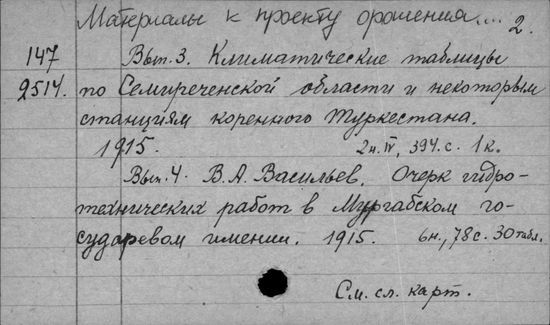 Материалы к проекту орошения... 2.
147 Вып. 3. Климатические таблицы
2514. по Семиреченской области и некоторым
станциям коренного Туркестана.
1915. 2н. IV, 394 с. 1 к.
Вып. 4. В. А. Васильев. Очерк гидро-
технических работ в Мургабском го-
сударевом имении. 1915. 6н., 78 с. 30 табл.
См. сл. карт.